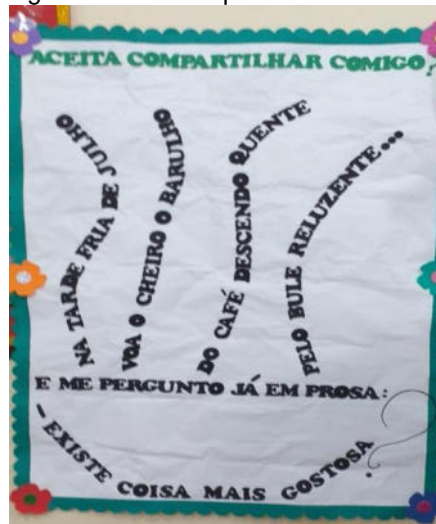 ACEITA COMPARTILHAR COMIGO?
NA TARDE FRIA DE JULHO
VOA O CHEIRO O BARULHO
DO CAFÉ DESCENDO QUENTE
PELO BULE RELUZENTE...
E ME PERGUNTO JÁ EM PROSA:
- EXISTE COISA MAIS GOSTOSA?